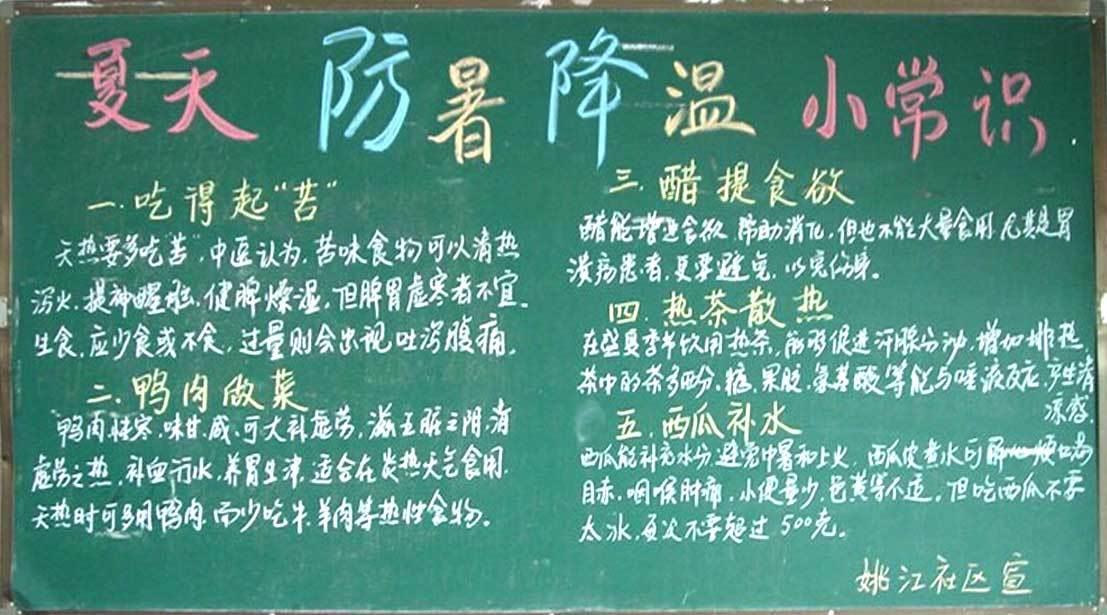 夏天防暑降温小常识
一.吃得起"苦"
天热要多吃"苦",中医认为,苦味食物可以清热
泻火、提神醒脑、健脾燥湿,但脾胃虚寒者不宜
生食,应少食或不食,过量则会出现吐泻腹痛。
二.鸭肉做菜
鸭肉性寒、味甘、咸,可大补虚劳,滋五脏之阴,清
虚劳之热,补血行水,养胃生津,适合在炎热天气食用,
天热时可多用鸭肉,而少吃牛、羊肉等热性食物。
三.醋提食欲
醋能增进食欲,帮助消化,但也不能大量食用,尤其是胃
溃疡患者,更要避免,以免伤身。
四.热茶散热
在盛夏季节饮用热茶,能够促进汗腺分泌,增加排热,
茶中的茶多酚、糖、果胶、氨基酸等能与唾液反应,产生清
凉感。
五.西瓜补水
西瓜能补充水分,避免中暑和上火,西瓜皮煮水可解心烦口渴
目赤,咽喉肿痛,小便量少,色黄等不适。但吃西瓜不要
太冰,每次不要超过500克。
姚江社区宣